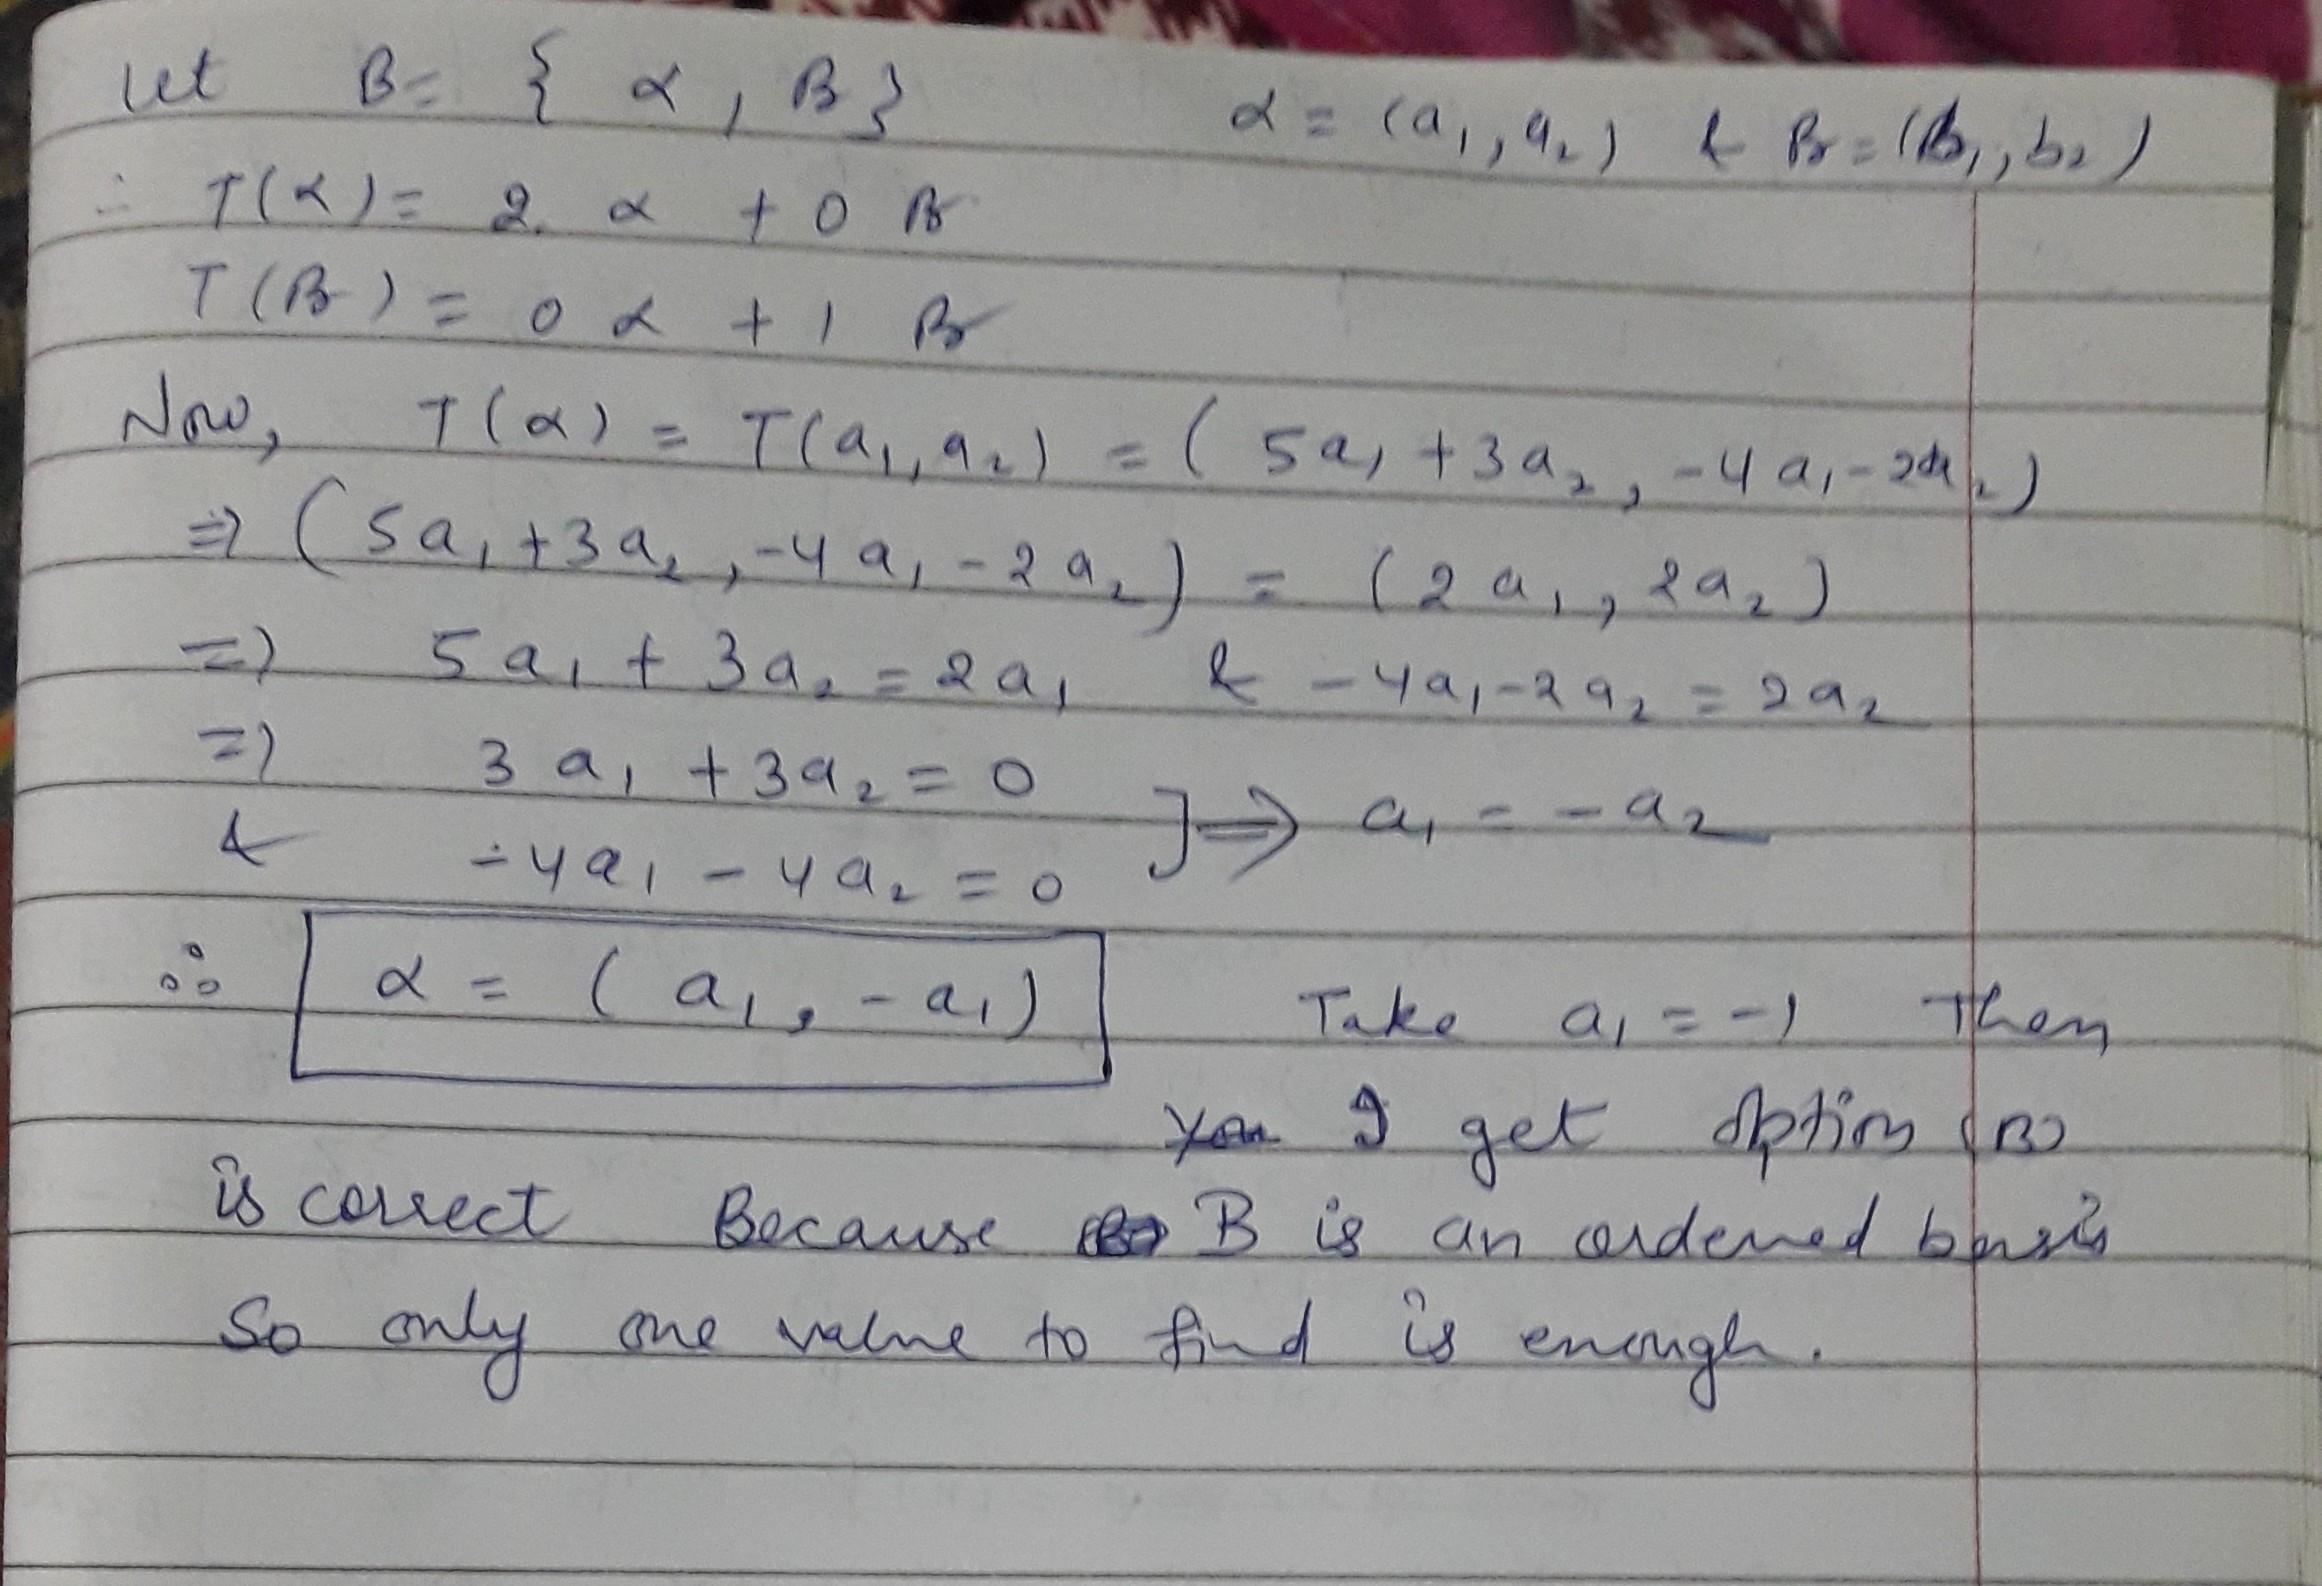 Let B = { α , β }   α = (a₁, a₂) & β = (b₁, b₂)
∴ T(α) = 2. α + 0 β
T(β) = 0 α + 1 β
Now, T(α) = T(a₁, a₂) = ( 5a₁ + 3a₂, -4a₁ - 2a₂ )
⇒ ( 5a₁ + 3a₂, -4a₁ - 2a₂ ) = ( 2a₁, 2a₂ )
⇒ 5a₁ + 3a₂ = 2a₁ & -4a₁ - 2a₂ = 2a₂
⇒ 3a₁ + 3a₂ = 0
& -4a₁ - 4a₂ = 0 ] ⇒ a₁ = -a₂
∴ α = ( a₁, -a₁ )   Take a₁ = -1 Then
I get option (B)
is correct Because B is an ordered basis
So only one value to find is enough.